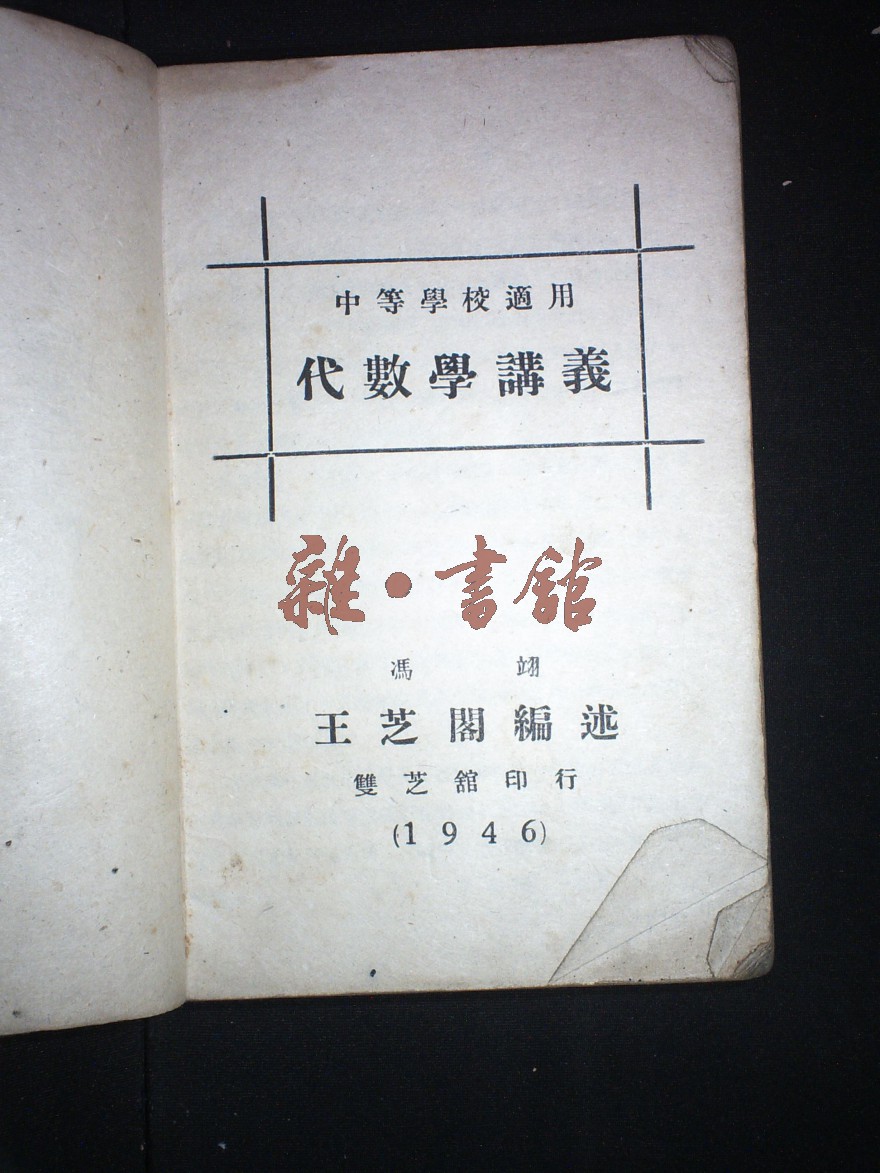 中等學校適用
代數學講義
雜·書館
馮 翊
王芝閣編述
雙芝舘印行
(1946)